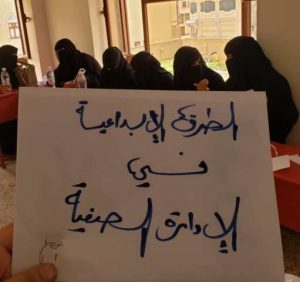 الطرق الإبداعية
في
الإدارة الصفية